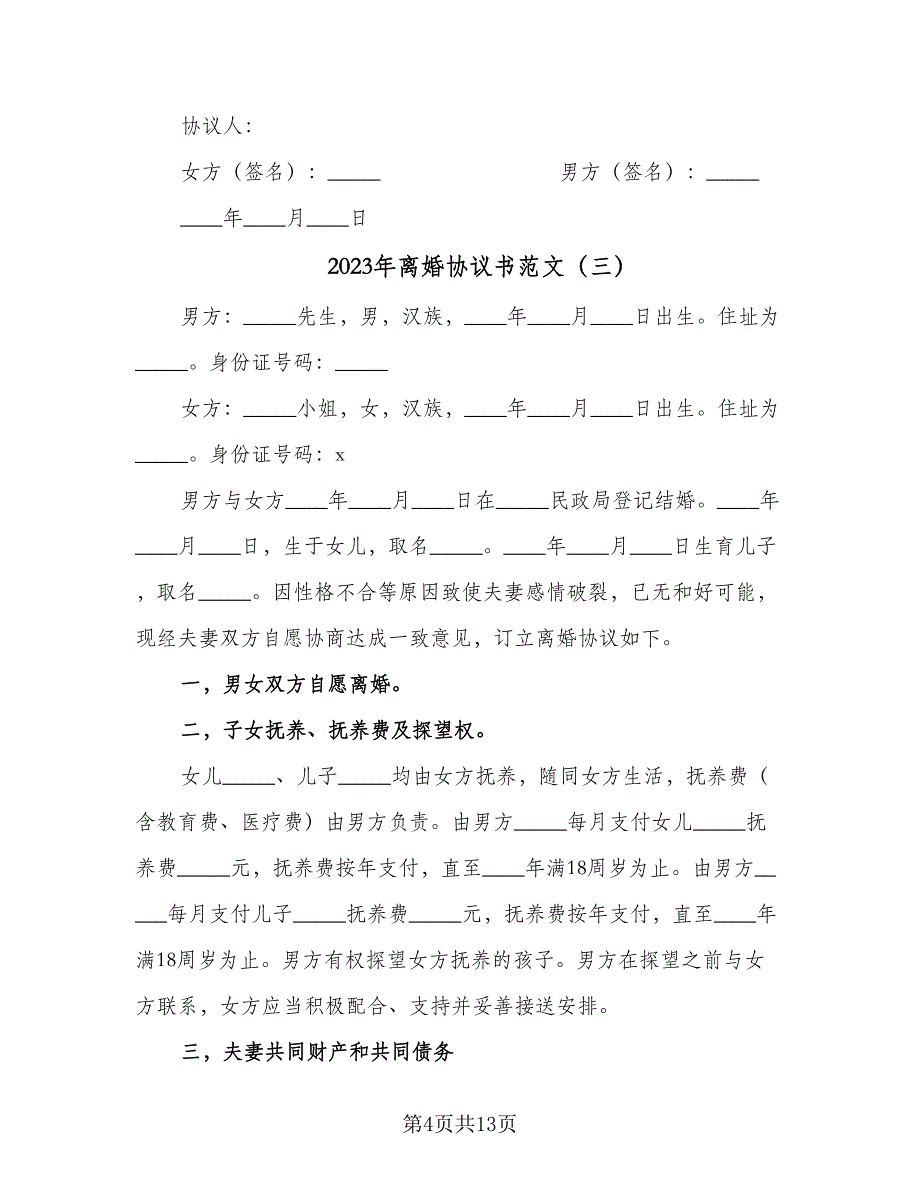 协议人：
女方（签名）：_____ 男方（签名）：_____
____年____月____日
2023年离婚协议书范文（三）
男方：_____先生，男，汉族，____年____月____日出生。住址为
_____。身份证号码：_____
女方：_____小姐，女，汉族，____年____月____日出生。住址为
_____。身份证号码：x
男方与女方____年____月____日在_____民政局登记结婚。____年
____月____日，生于女儿，取名_____。____年____月____日生育儿子
，取名_____。因性格不合等原因致使夫妻感情破裂，已无和好可能，
现经夫妻双方自愿协商达成一致意见，订立离婚协议如下。
一，男女双方自愿离婚。
二，子女抚养、抚养费及探望权。
女儿_____、儿子_____均由女方抚养，随同女方生活，抚养费（
含教育费、医疗费）由男方负责。由男方_____每月支付女儿_____抚
养费_____元，抚养费按年支付，直至____年满18周岁为止。由男方__
___每月支付儿子_____抚养费_____元，抚养费按年支付，直至____年
满18周岁为止。男方有权探望女方抚养的孩子。男方在探望之前与女
方联系，女方应当积极配合、支持并妥善接送安排。
三，夫妻共同财产和共同债务
第4页共13页